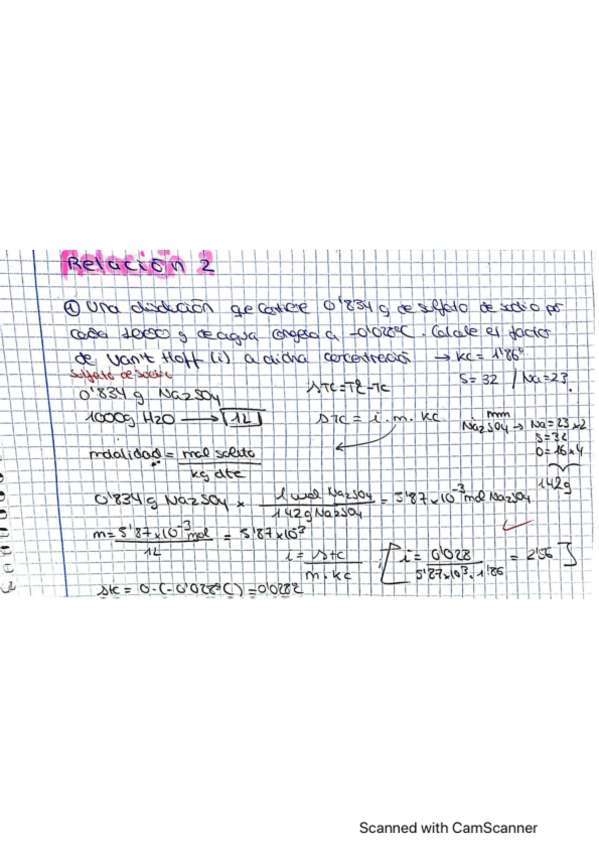 Relación 2
① Una disolución que contiene 0'834 g de sulfato de sodio por
cada 1000 g de agua congela a -0'028ºC. Calcule el factor
de Van't Hoff (i) a dicha concentración → Kc = 1'86º
Sulfato de sodio
S = 32 / Na = 23.
0'834 g Na2SO4
ΔTC = Tº - TC
1000g H2O → 1L
ΔTC = i . m . kc
mm
Na2SO4 → Na = 23 x 2
S = 32
O = 16 x 4
142g
molalidad = mol soluto / kg dte
0'834 g Na2SO4 x 1 mol Na2SO4 / 142g Na2SO4 = 5'87 x 10^-3 mol Na2SO4
m = 5'87 x 10^-3 mol / 1L = 5'87 x 10^3
i = Δtc / m . kc
[ i = 0'028 / 5'87x10^3 . 1'86 = 2'56 ]
Δtc = 0 - (-0'028ºC) = 0'028º
Scanned with CamScanner